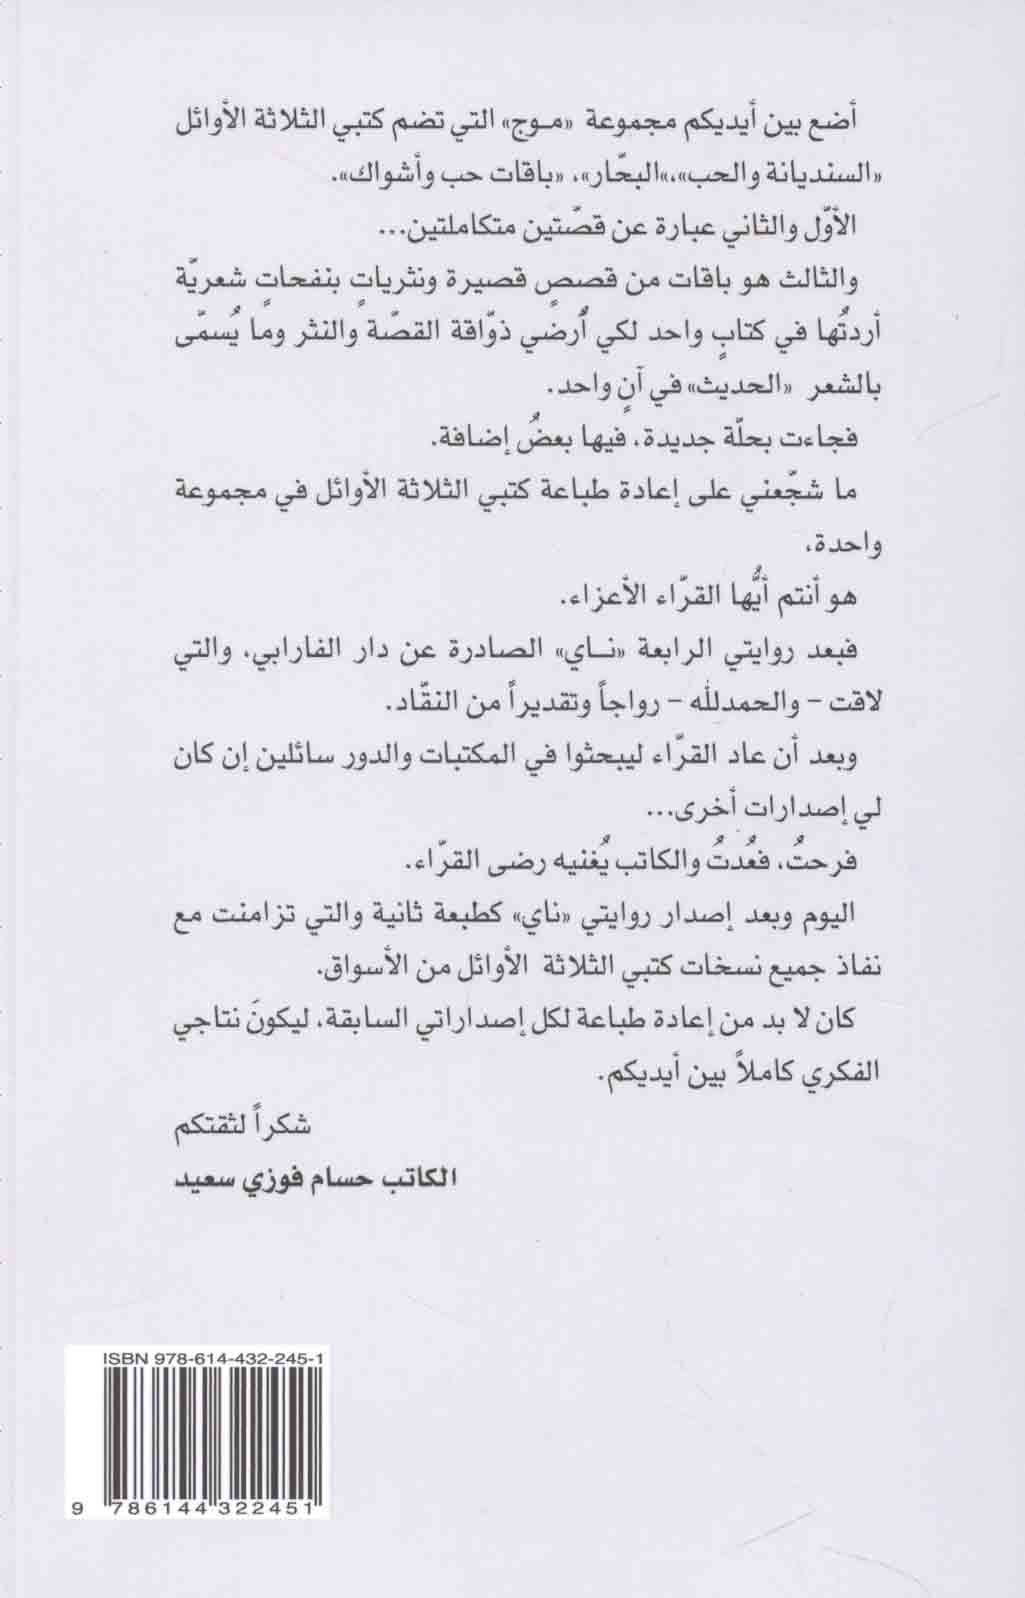 أضع بين أيديكم مجموعة «موج» التي تضم كتبي الثلاثة الأوائل
«السنديانة والحب»،«البحّار»، «باقات حب وأشواك».
الأوّل والثاني عبارة عن قصّتين متكاملتين...
والثالث هو باقات من قصصٍ قصيرة ونثرياتٍ بنفحاتٍ شعريّة
أردتُها في كتابٍ واحد لكي أُرضي ذوّاقة القصّة والنثر وما يُسمّى
بالشعر «الحديث» في آنٍ واحد.
فجاءت بحلّة جديدة، فيها بعضُ إضافة.
ما شجّعني على إعادة طباعة كتبي الثلاثة الأوائل في مجموعة
واحدة،
هو أنتم أيُّها القرّاء الأعزاء.
فبعد روايتي الرابعة «نـاي» الصادرة عن دار الفارابي، والتي
لاقت - والحمدلله - رواجاً وتقديراً من النقّاد.
وبعد أن عاد القرّاء ليبحثوا في المكتبات والدور سائلين إن كان
لي إصدارات أخرى...
فرحتُ، فعُدتُ والكاتب يُغنيه رضى القرّاء.
اليوم وبعد إصدار روايتي «ناي» كطبعة ثانية والتي تزامنت مع
نفاذ جميع نسخات كتبي الثلاثة الأوائل من الأسواق.
كان لا بد من إعادة طباعة لكل إصداراتي السابقة، ليكونَ نتاجي
الفكري كاملاً بين أيديكم.
شكراً لثقتكم
الكاتب حسام فوزي سعيد
ISBN 978-614-432-245-1
9 786144 322451